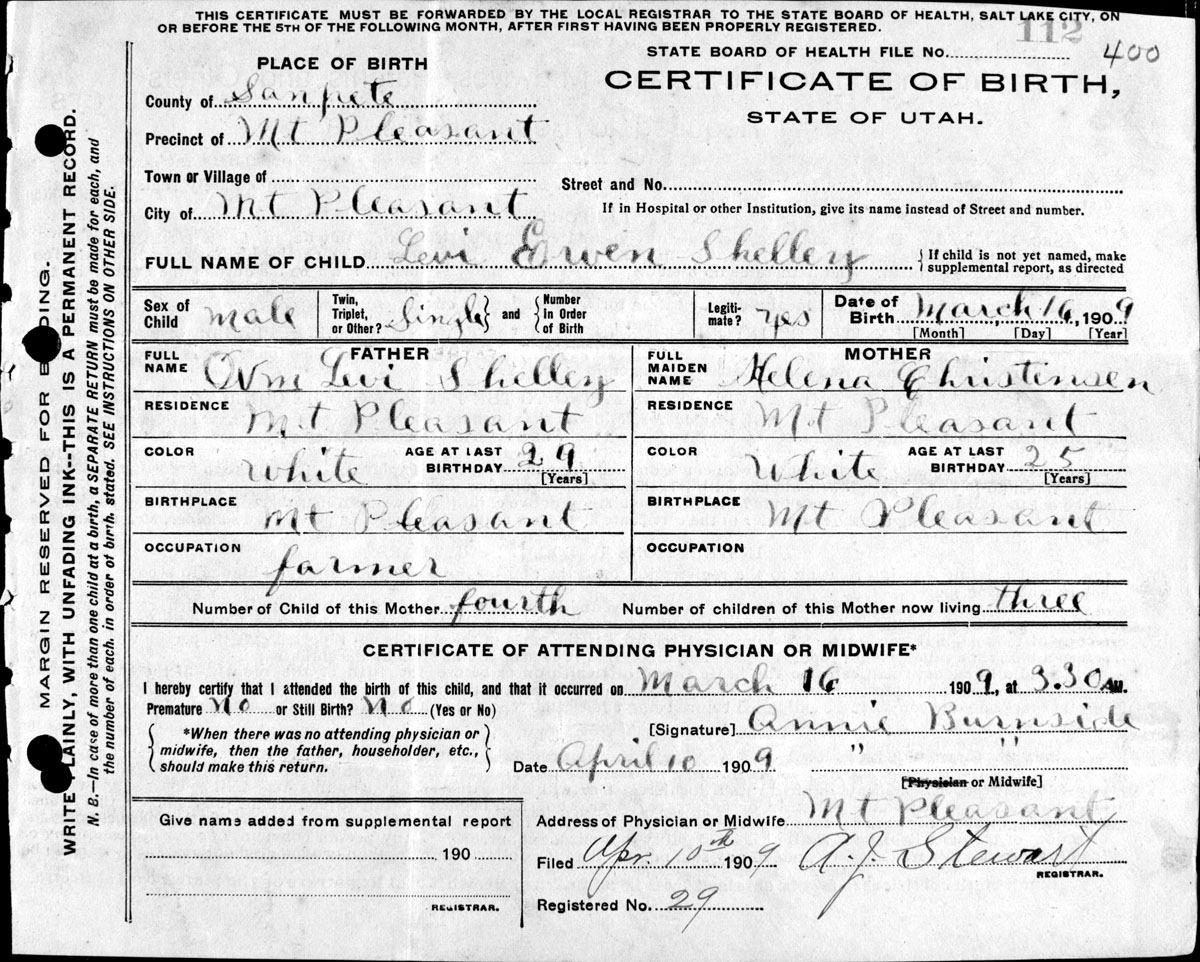 THIS CERTIFICATE MUST BE FORWARDED BY THE LOCAL REGISTRAR TO THE STATE BOARD OF HEALTH, SALT LAKE CITY, ON
OR BEFORE THE 5TH OF THE FOLLOWING MONTH, AFTER FIRST HAVING BEEN PROPERLY REGISTERED.
112
STATE BOARD OF HEALTH FILE No. 400
CERTIFICATE OF BIRTH,
STATE OF UTAH.
PLACE OF BIRTH
County of Sanpete
Precinct of Mt Pleasant
Town or Village of
Street and No.
City of Mt Pleasant
If in Hospital or other Institution, give its name instead of Street and number.
FULL NAME OF CHILD Levi Erwen Shelley
If child is not yet named, make
supplemental report, as directed
Sex of Child male
Twin, Triplet, or Other? Single and Number in Order of Birth
Legitimate? yes
Date of Birth March 16, 1909
[Month] [Day] [Year]
FATHER
FULL NAME Wm Levi Shelley
RESIDENCE Mt Pleasant
COLOR White AGE AT LAST BIRTHDAY 29 [Years]
BIRTHPLACE Mt Pleasant
OCCUPATION farmer
MOTHER
FULL MAIDEN NAME Helena Christensen
RESIDENCE Mt Pleasant
COLOR White AGE AT LAST BIRTHDAY 25 [Years]
BIRTHPLACE Mt Pleasant
OCCUPATION
Number of Child of this Mother fourth Number of children of this Mother now living three
CERTIFICATE OF ATTENDING PHYSICIAN OR MIDWIFE*
I hereby certify that I attended the birth of this child, and that it occurred on March 16 1909, at 3.30 AM.
Premature No or Still Birth? No (Yes or No)
*When there was no attending physician or
midwife, then the father, householder, etc.,
should make this return.
[Signature] Annie Burnside
Date April 10 1909 " "
[Physician or Midwife]
Give name added from supplemental report
190
REGISTRAR.
Address of Physician or Midwife Mt Pleasant
Filed Apr. 10th 1909 A. J. Stewart
REGISTRAR.
Registered No. 29
MARGIN RESERVED FOR BINDING.
WRITE PLAINLY, WITH UNFADING INK--THIS IS A PERMANENT RECORD.
N. B.—In case of more than one child at a birth, a SEPARATE RETURN must be made for each, and
the number of each, in order of birth, stated. SEE INSTRUCTIONS ON OTHER SIDE.